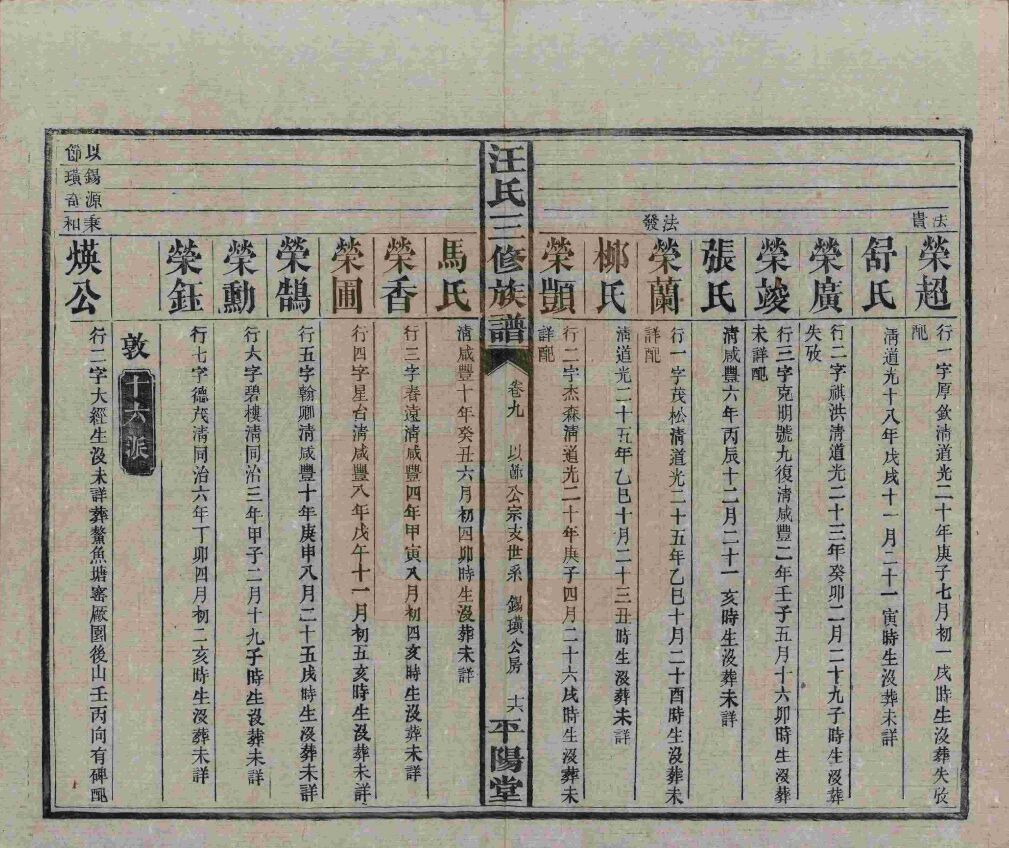 法貴
榮超
行一字厚欽淸道光二十年庚子七月初一戌時生沒葬失攷
配
舒氏
淸道光十八年戊戌十一月二十一寅時生沒葬未詳
榮廣
行二字祺洪淸道光二十三年癸卯二月二十九子時生沒葬
失攷
榮竣
行三字克明號九復淸咸豐二年壬子五月十六卯時生沒葬
未詳配
張氏
淸咸豐六年丙辰十二月二十一亥時生沒葬未詳
法發
榮蘭
行一字茂松淸道光二十五年乙巳十月二十酉時生沒葬未
詳配
鄉氏
淸道光二十五年乙巳十月二十三丑時生沒葬未詳
榮顗
行二字杰森淸道光二十年庚子四月二十六戌時生沒葬未
詳配
汪氏三修族譜
卷九
以節公宗支世系
錫璜公房
十六
平陽堂
馬氏
淸咸豐十年癸丑六月初四卯時生沒葬未詳
榮香
行三字春遠淸咸豐四年甲寅八月初四亥時生沒葬未詳
榮圃
行四字星台淸咸豐八年戊午十一月初五亥時生沒葬未詳
榮鵠
行五字翰卿淸咸豐十年庚申八月二十五戌時生沒葬未詳
榮勳
行六字碧樓淸同治三年甲子二月十九子時生沒葬未詳
榮鈺
行七字德茂淸同治六年丁卯四月初二亥時生沒葬未詳
敦
十六派
以錫源秉
節璜奇和
煐公
行二字大經生沒未詳葬鰲魚塘窰廠園後山壬丙向有碑配